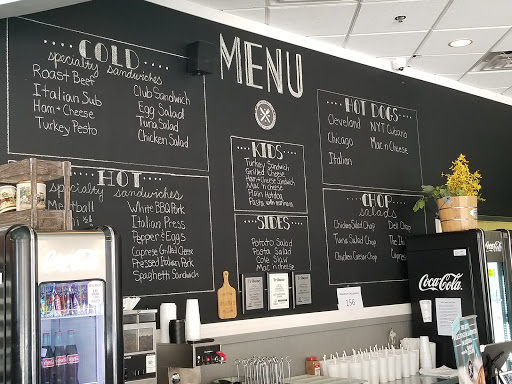 MENU
COLD
specialty sandwiches
Roast Beef
Italian Sub
Ham + Cheese
Turkey Pesto
Club Sandwich
Egg Salad
Tuna Salad
Chicken Salad
HOT
specialty sandwiches
Meatball
White BBQ Pork
Italian Press
Pepper & Eggs
Caprese Grilled Cheese
Pressed Italian Pork
Spaghetti Sandwich
KIDS
Turkey Sandwich
Grilled Cheese
Ham + Cheese Sandwich
Mac 'n cheese
Plain Hotdog
Pasta with marinara
SIDES
Potato Salad
Pasta Salad
Cole Slaw
Mac 'n cheese
HOT DOGS
Cleveland
Chicago
Italian
NYT Cubano
Mac 'n Cheese
CHOP
salads
Chicken Salad Chop
Tuna Salad Chop
Chicken Caesar Chop
Deli Chop
The It
Capres
156
Coca-Cola